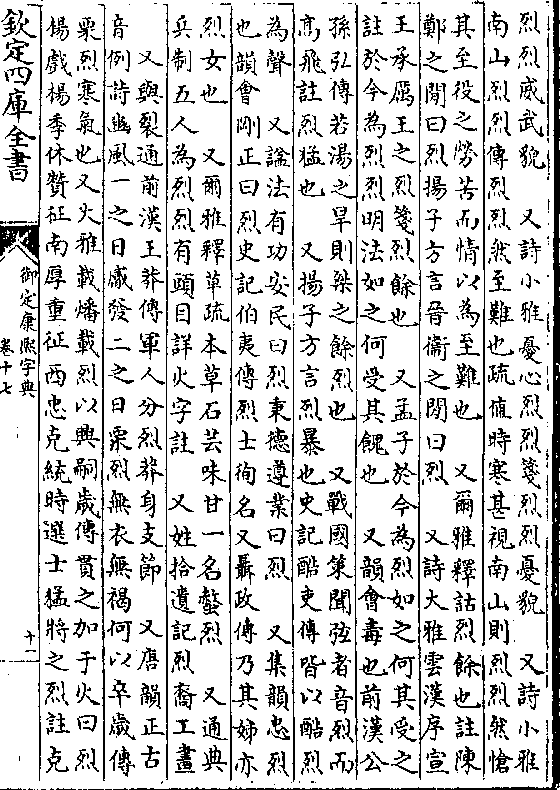 烈烈威武貌　又詩小雅憂心烈烈箋烈烈憂貌　又詩小雅
南山烈烈傳烈烈然至難也疏值時寒甚視南山則烈烈然愴
其至役之勞苦而情以為至難也　又爾雅釋詁烈餘也註陳
鄭之閒曰烈揚子方言晉衞之閒曰烈　又詩大雅雲漢序宣
王承厲王之烈箋烈餘也　又孟子於今為烈如之何其受之
註於今為烈烈明法如之何受其餽也　又韻會毒也前漢公
孫弘傳若湯之旱則桀之餘烈也　又戰國策聞弦者音烈而
高飛註烈猛也　又揚子方言烈暴也史記酷吏傳皆以酷烈
為聲　又諡法有功安民曰烈秉德遵業曰烈　又集韻忠烈
也韻會剛正曰烈史記伯夷傳烈士徇名又聶政傳乃其姊亦
烈女也　又爾雅釋草疏本草石芸味甘一名螫烈　又通典
兵制五人為烈烈有頭目詳火字註　又姓拾遺記烈裔工畫
又與裂通前漢王莽傳軍人分烈莽身支節　又唐韻正古
音例詩豳風一之日觱發二之日栗烈無衣無褐何以卒歲傳
栗烈寒氣也又大雅載燔載烈以興嗣歲傳貫之加于火曰烈
楊戲楊季休贊征南厚重征西忠克統時選士猛將之烈註克
欽定四庫全書
御定康熙字典
卷十七
十一